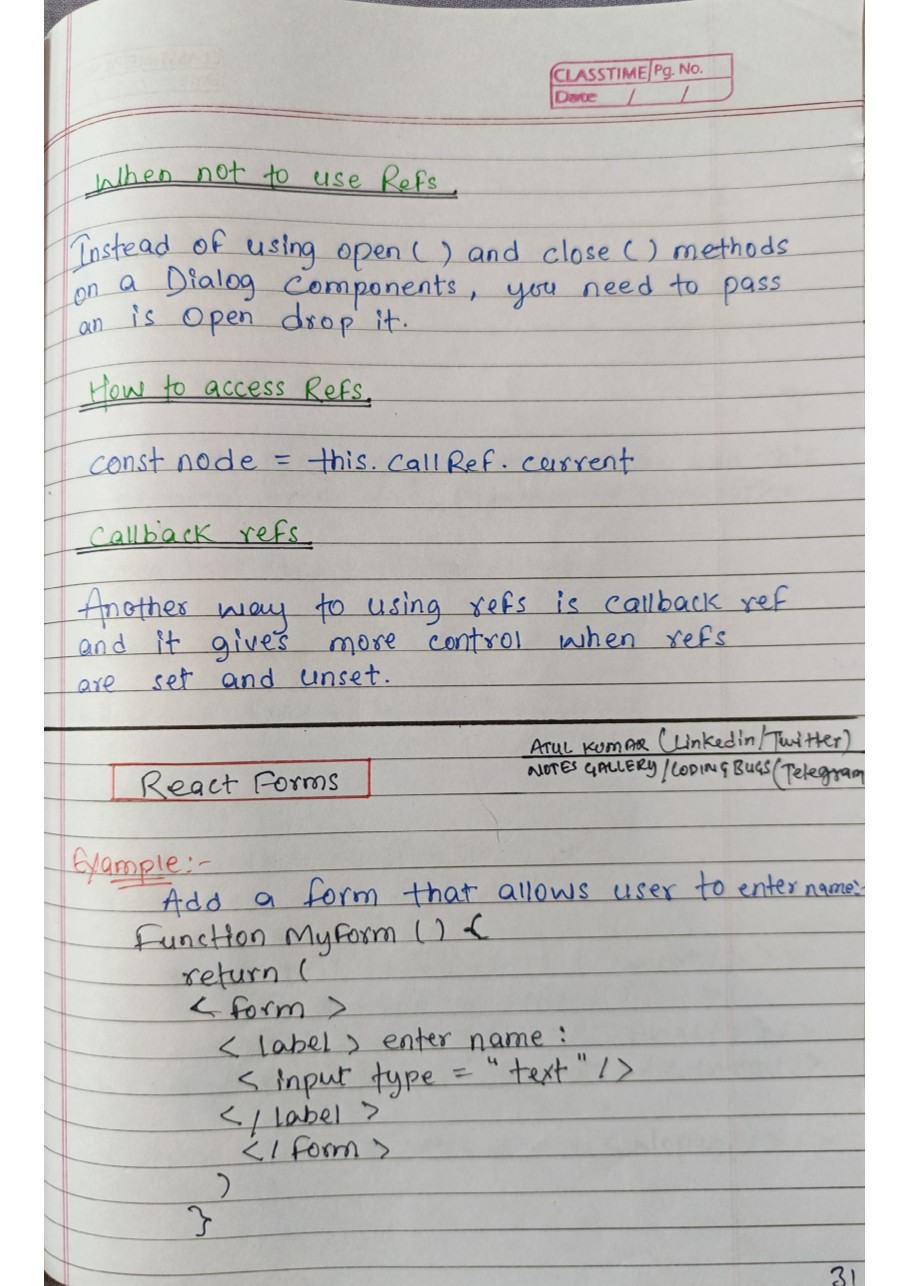 CLASSTIME Pg. No.
Date / /
When not to use Refs
Instead of using open ( ) and close ( ) methods
on a Dialog Components, you need to pass
an is Open drop it.
How to access Refs
const node = this. Call Ref. current
Callback refs
Another way to using refs is callback ref
and it gives more control when refs
are set and unset.
ATUL KUMAR (Linkedin/Twitter)
NOTES GALLERY / CODING BUGS (Telegram
React Forms
Example:-
Add a form that allows user to enter name:-
Function MyForm ( ) {
return (
< form >
< label > enter name :
< input type = "text" />
</ label >
</ form >
)
}
31